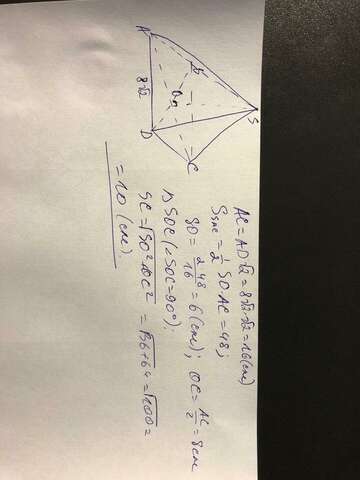 A
B
O
S
D
C
8√2
AC = AD√2 = 8√2·√2 = 16 (см)
S_SAC = 1/2 SO·AC = 48;
SO = 2·48/16 = 6 (см); OC = AC/2 = 8 см
Δ SOC (∠SOC = 90°):
SC = √SO²+OC² = √36+64 = √100 =
= 10 (см)